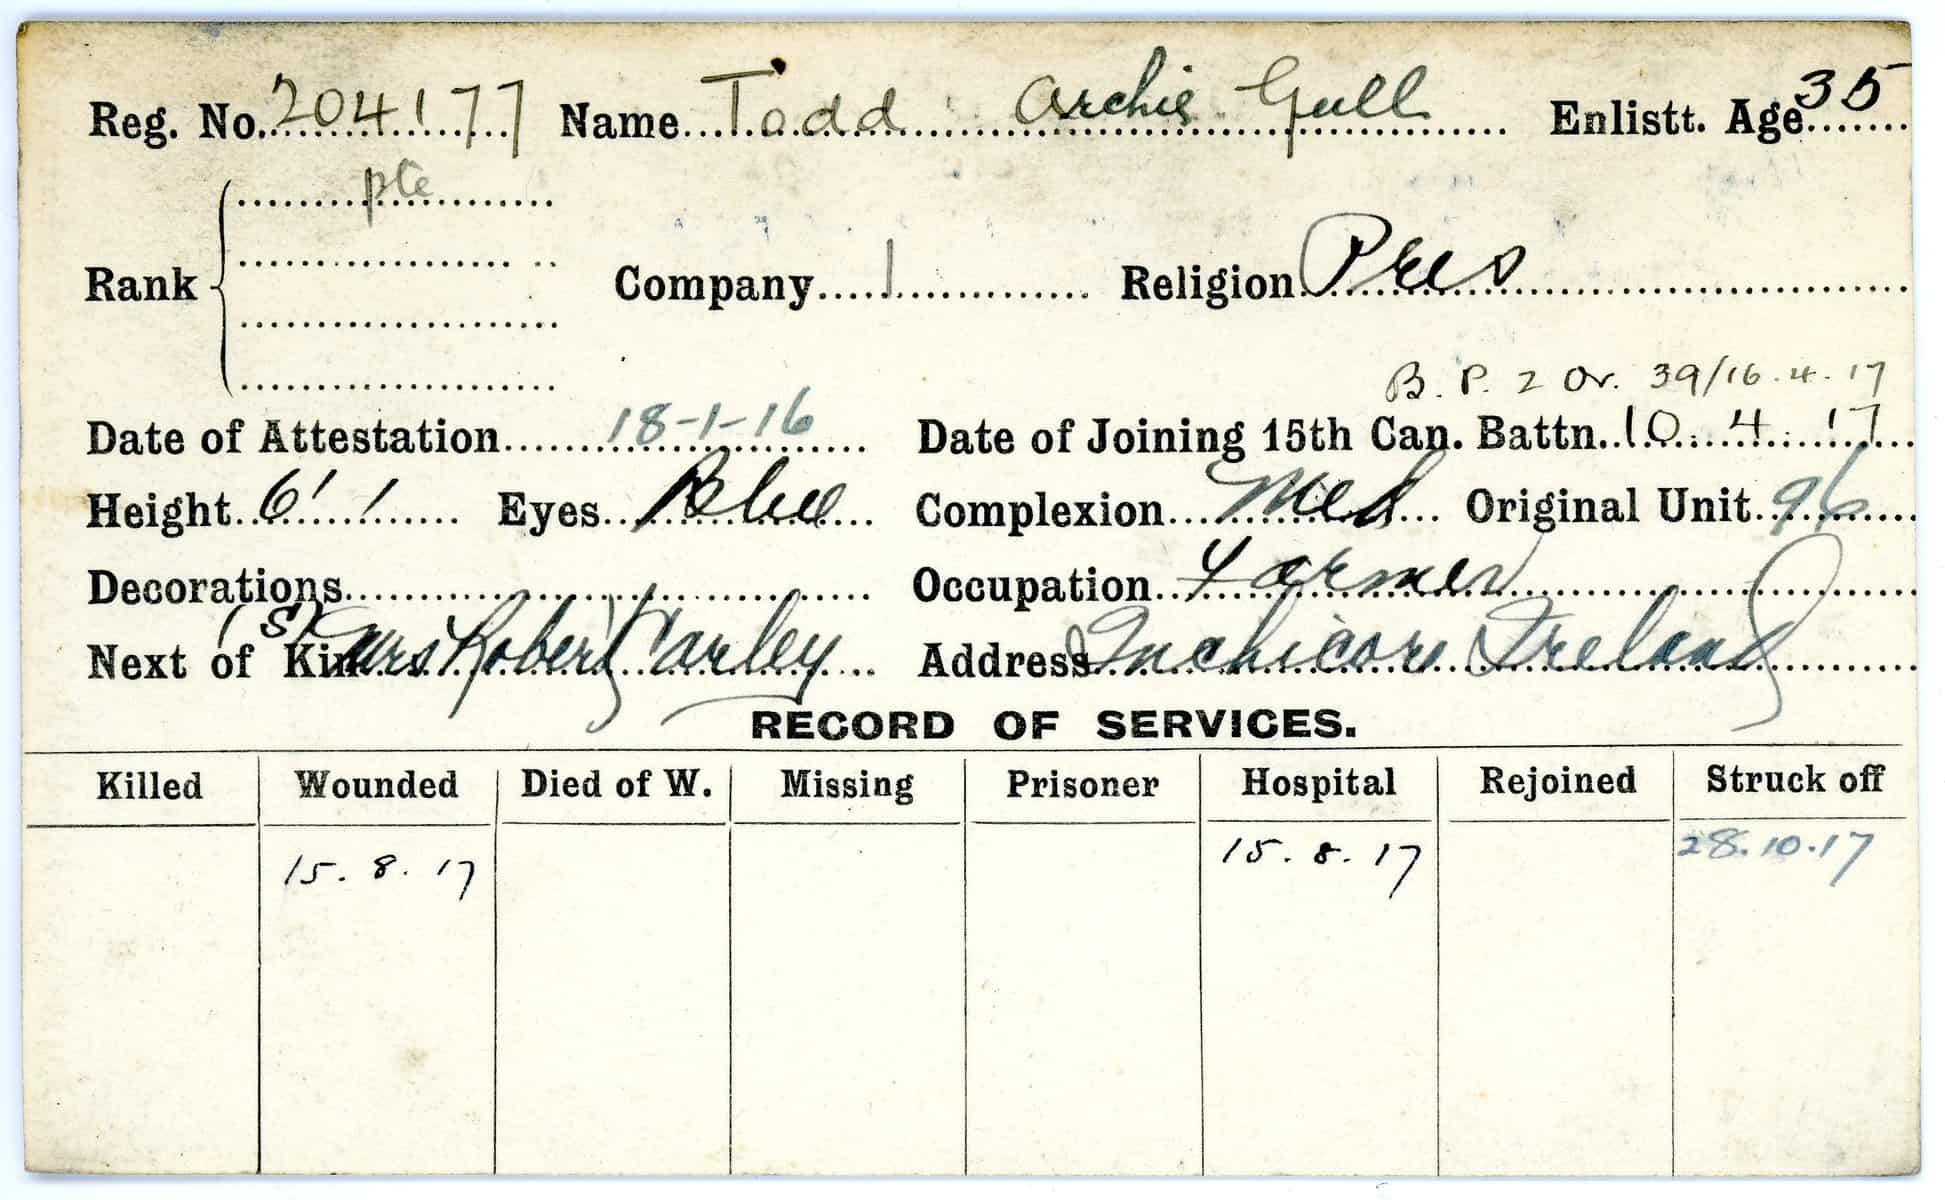 Reg. No. 204177 Name Todd Archie Gull Enlistt. Age 35
pte
Rank Company 1 Religion Pres
B. P. 2 Or. 39/16.4.17
Date of Attestation 18-1-16 Date of Joining 15th Can. Battn. 10.4.17
Height 6' 1 Eyes Blue Complexion Med Original Unit 96
Decorations Occupation Farmer
(S) Next of Kin Mrs Robert Varley Address Inchicore Ireland
RECORD OF SERVICES.
Killed Wounded Died of W. Missing Prisoner Hospital Rejoined Struck off
15.8.17 15.8.17 28.10.17